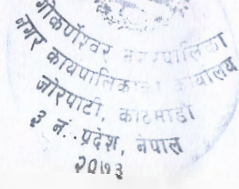 गोकर्णेश्वर नगरपालिका
नगर कार्यपालिकाको कार्यालय
जोरपाटी, काठमाडौं
३ नं. प्रदेश, नेपाल
२०७३